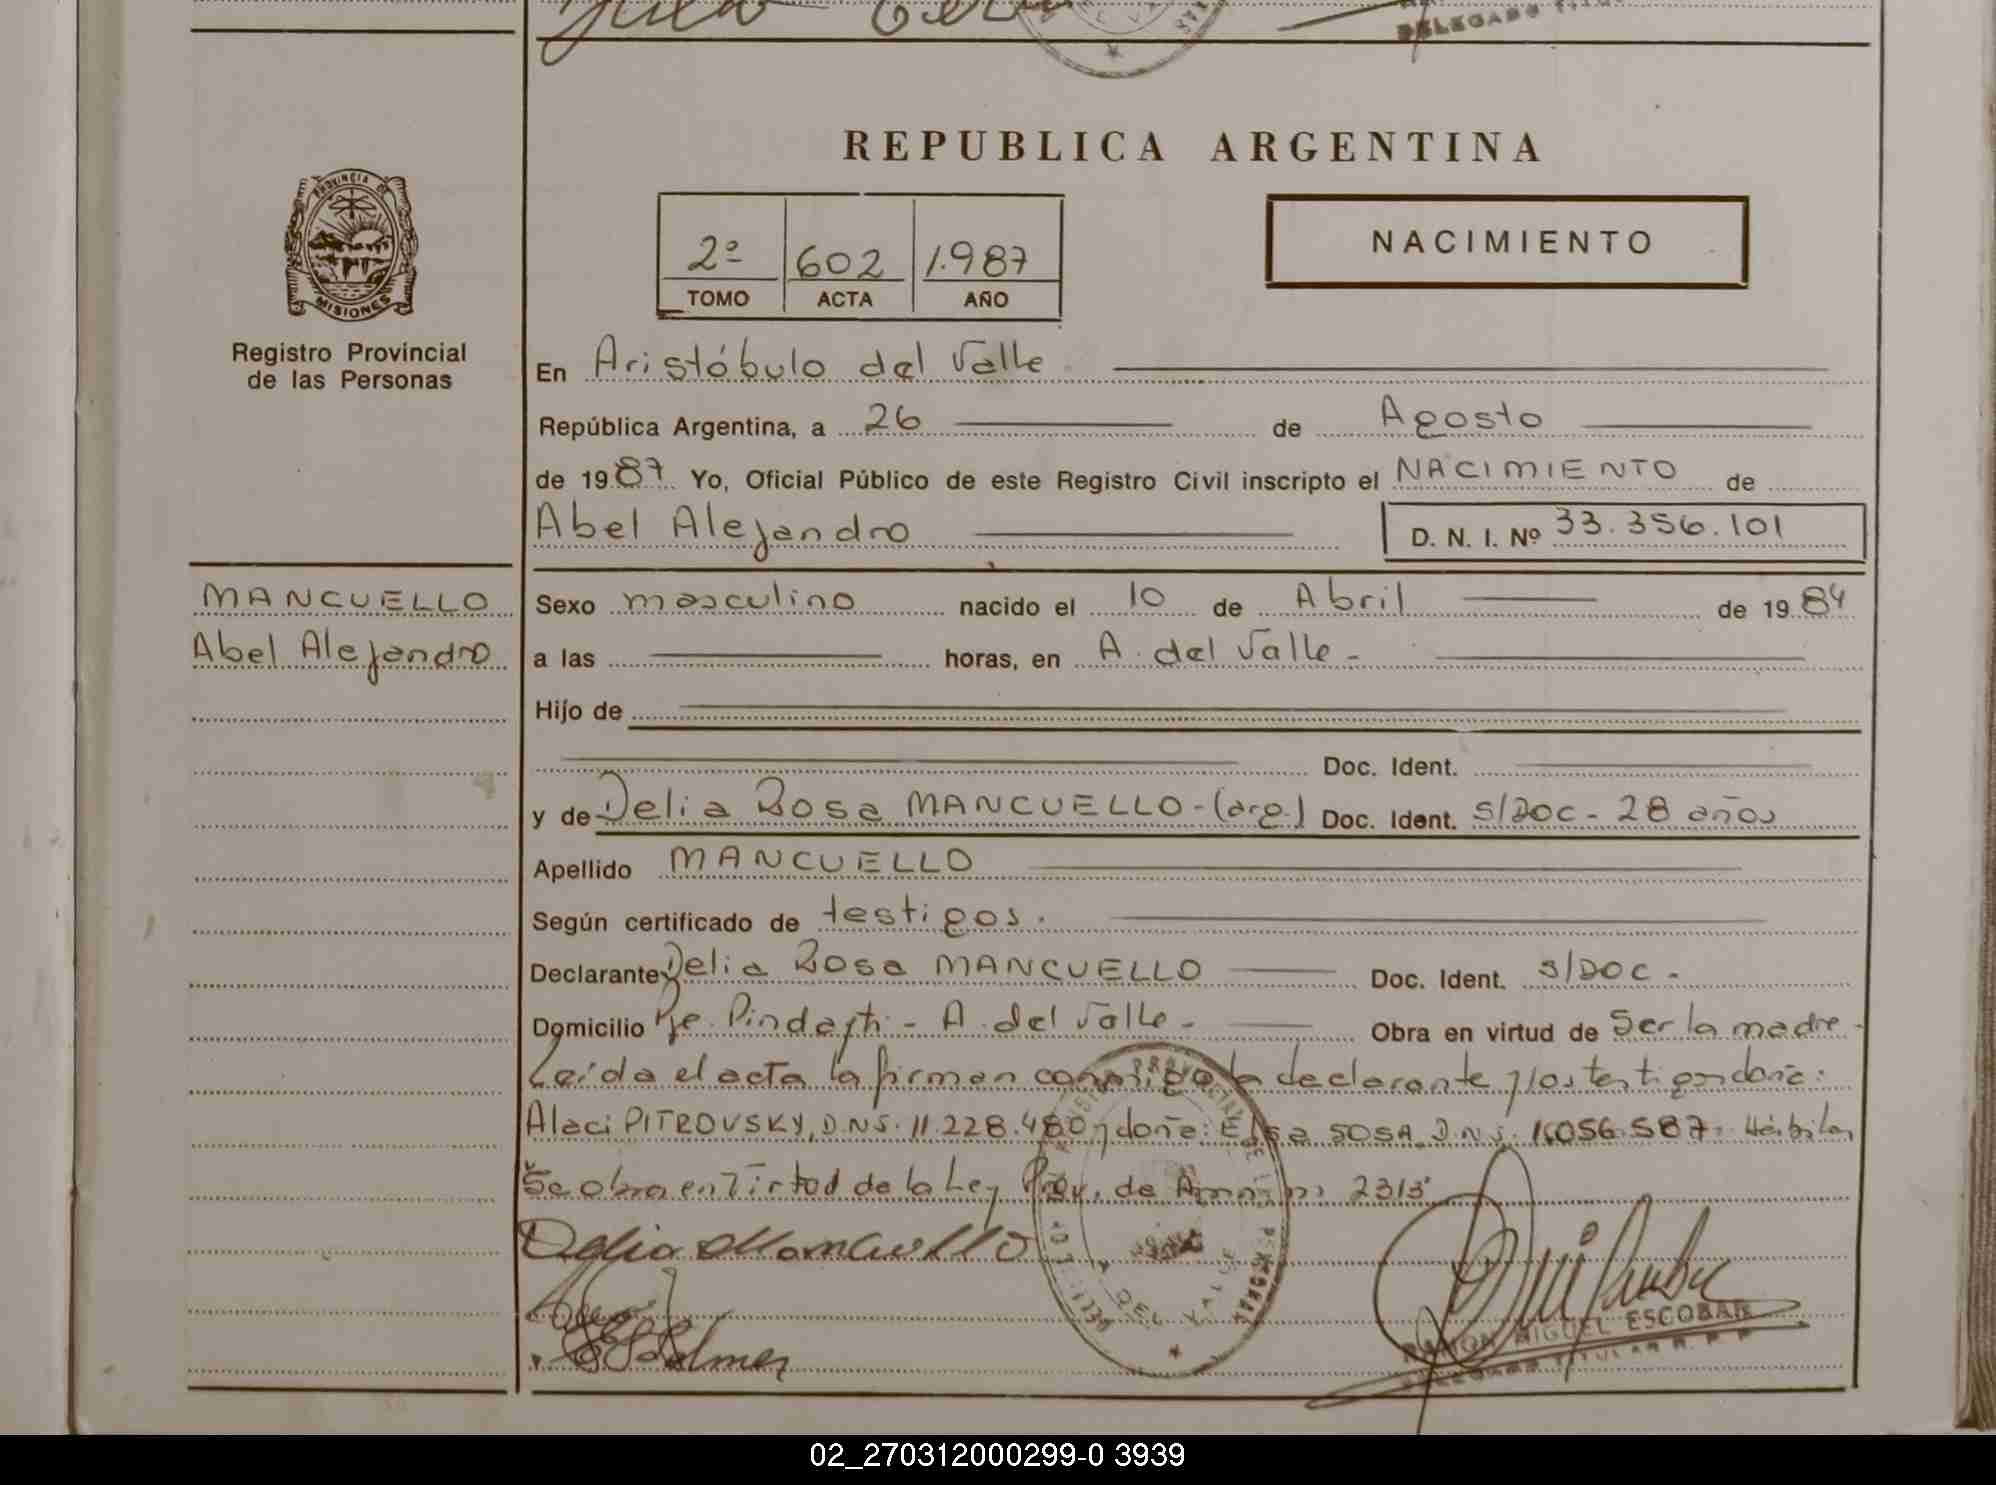 DELEGADO TITU
REPUBLICA ARGENTINA
PROVINCIA DE
MISIONES
Registro Provincial
de las Personas
2º 602 1.987
TOMO ACTA AÑO
NACIMIENTO
En Aristóbulo del Valle
República Argentina, a 26 de Agosto
de 1987 Yo, Oficial Público de este Registro Civil inscripto el NACIMIENTO de
Abel Alejandro D. N. I. Nº 33.356.101
MANCUELLO
Abel Alejandro
Sexo masculino nacido el 10 de Abril de 1984
a las horas, en A. del Valle -
Hijo de
Doc. Ident.
y de Delia Rosa MANCUELLO - (arg.) Doc. Ident. S/DOC - 28 años
Apellido MANCUELLO
Según certificado de testigos.
Declarante Delia Rosa MANCUELLO Doc. Ident. S/DOC -
Domicilio Pje. Pindayti - A. del Valle - Obra en virtud de Ser la madre -
Leída el acta la firman conmigo la declarante y los testigos doña:
Alaci PITROVSKY, D.N.I. 11.228.480 y doña: Elsa SOSA, D.N.I. 16.056.587. Hábiles
Se obra en Virtud de la Ley Prov. de Amnistía 2313
Delia Mancuello
DEL VALLE
RAMON MIGUEL ESCOBAR
DELEGADO TITULAR R. P. P.
02_270312000299-0 3939